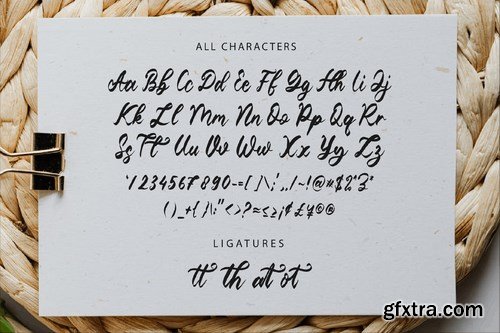 ALL CHARACTERS
Aa Bb Cc Dd Ee Ff Gg Hh Ii Jj
Kk Ll Mm Nn Oo Pp Qq Rr
Ss Tt Uu Vv Ww Xx Yy Zz
1234567890
LIGATURES
tt th at ot
gfxtra.com